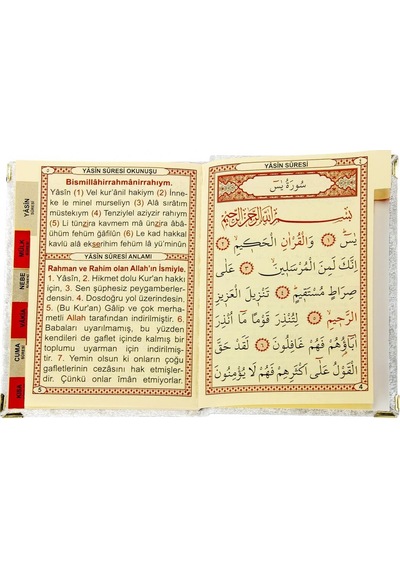 YÂSİN SÛRESİ OKUNUŞU
Bismillâhirrahmânirrahıym.
Yâsîn (1) Vel kur'ânil hakiym (2) İnne-
ke le minel murseliyn (3) Alâ sırâtım
müstekıym (4) Tenziylel aziyzir rahıym
(5) Li tünzira kavmem mâ ünzira âbâ-
ühüm fehüm ğâfilûn (6) Le kad hakkal
kavlü alâ ekserihim fehüm lâ yü'minûn
YÂSİN SÛRESİ ANLAMI
Rahman ve Rahim olan Allah'ın İsmiyle.
1. Yâsîn, 2. Hikmet dolu Kur'an hakkı
için, 3. Sen şüphesiz peygamberler-
densin. 4. Dosdoğru yol üzerindesin.
5. (Bu Kur'an) Gâlip ve çok merha-
metli Allah tarafından indirilmiştir. 6.
Babaları uyarılmamış, bu yüzden
kendileri de gaflet içinde kalmış bir
toplumu uyarman için indirilmiş-
tir. 7. Yemin olsun ki onların çoğu
gafletlerinin cezasını hak etmişler-
dir. Çünkü onlar îmân etmiyorlar.
5
YÂSİN
SÛRESİ
MÜLK
NEBE
VAKIA
CUMA
KISA
YÂSİN SÛRESİ
سُورَةُ يٰسٓ
بِسْمِ اللّٰهِ الرَّحْمٰنِ الرَّحِيمِ
يٰسٓ ﴿١﴾ وَالْقُرْاٰنِ الْحَكِيمِ ﴿٢﴾
اِنَّكَ لَمِنَ الْمُرْسَلِينَ ﴿٣﴾ عَلٰى
صِرَاطٍ مُسْتَقِيمٍ ﴿٤﴾ تَنْزِيلَ الْعَزِيزِ
الرَّحِيمِ ﴿٥﴾ لِتُنْذِرَ قَوْمًا مَٓا اُنْذِرَ
اٰبَٓاؤُهُمْ فَهُمْ غَافِلُونَ ﴿٦﴾ لَقَدْ حَقَّ
الْقَوْلُ عَلٰٓى اَكْثَرِهِمْ فَهُمْ لَا يُؤْمِنُونَ
4